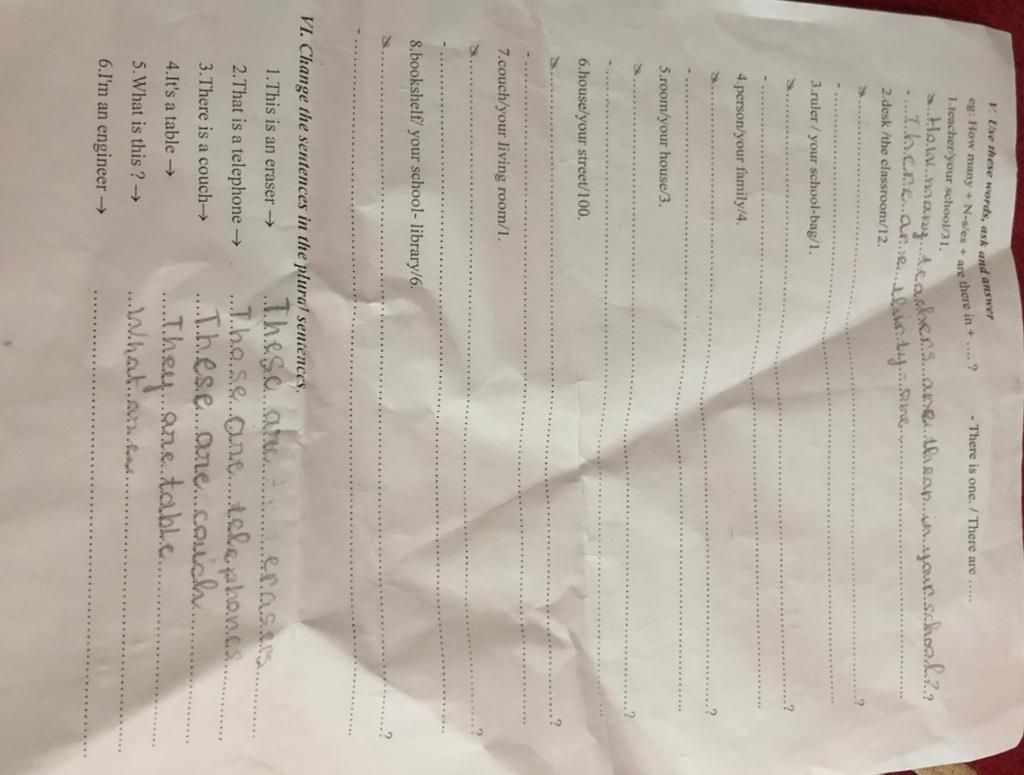 V. Use these words, ask and answer
eg: How many + N-s/es + are there in + ....? - There is one. / There are ......
1.teacher/your school/31.
How many teachers are thear in your school??
- There are thirty-one
2.desk /the classroom/12.
?
-
3.ruler / your school-bag/1.
?
-
4.person/your family/4.
?
-
5.room/your house/3.
?
-
6.house/your street/100.
?
-
7.couch/your living room/1.
?
-
8.bookshelf/ your school- library/6.
?
-
VI. Change the sentences in the plural sentences.
1.This is an eraser → These are erasers
2.That is a telephone → Those are telephones
3.There is a couch→ These are couch
4.It's a table → They are table
5.What is this ? → What are
6.I'm an engineer →